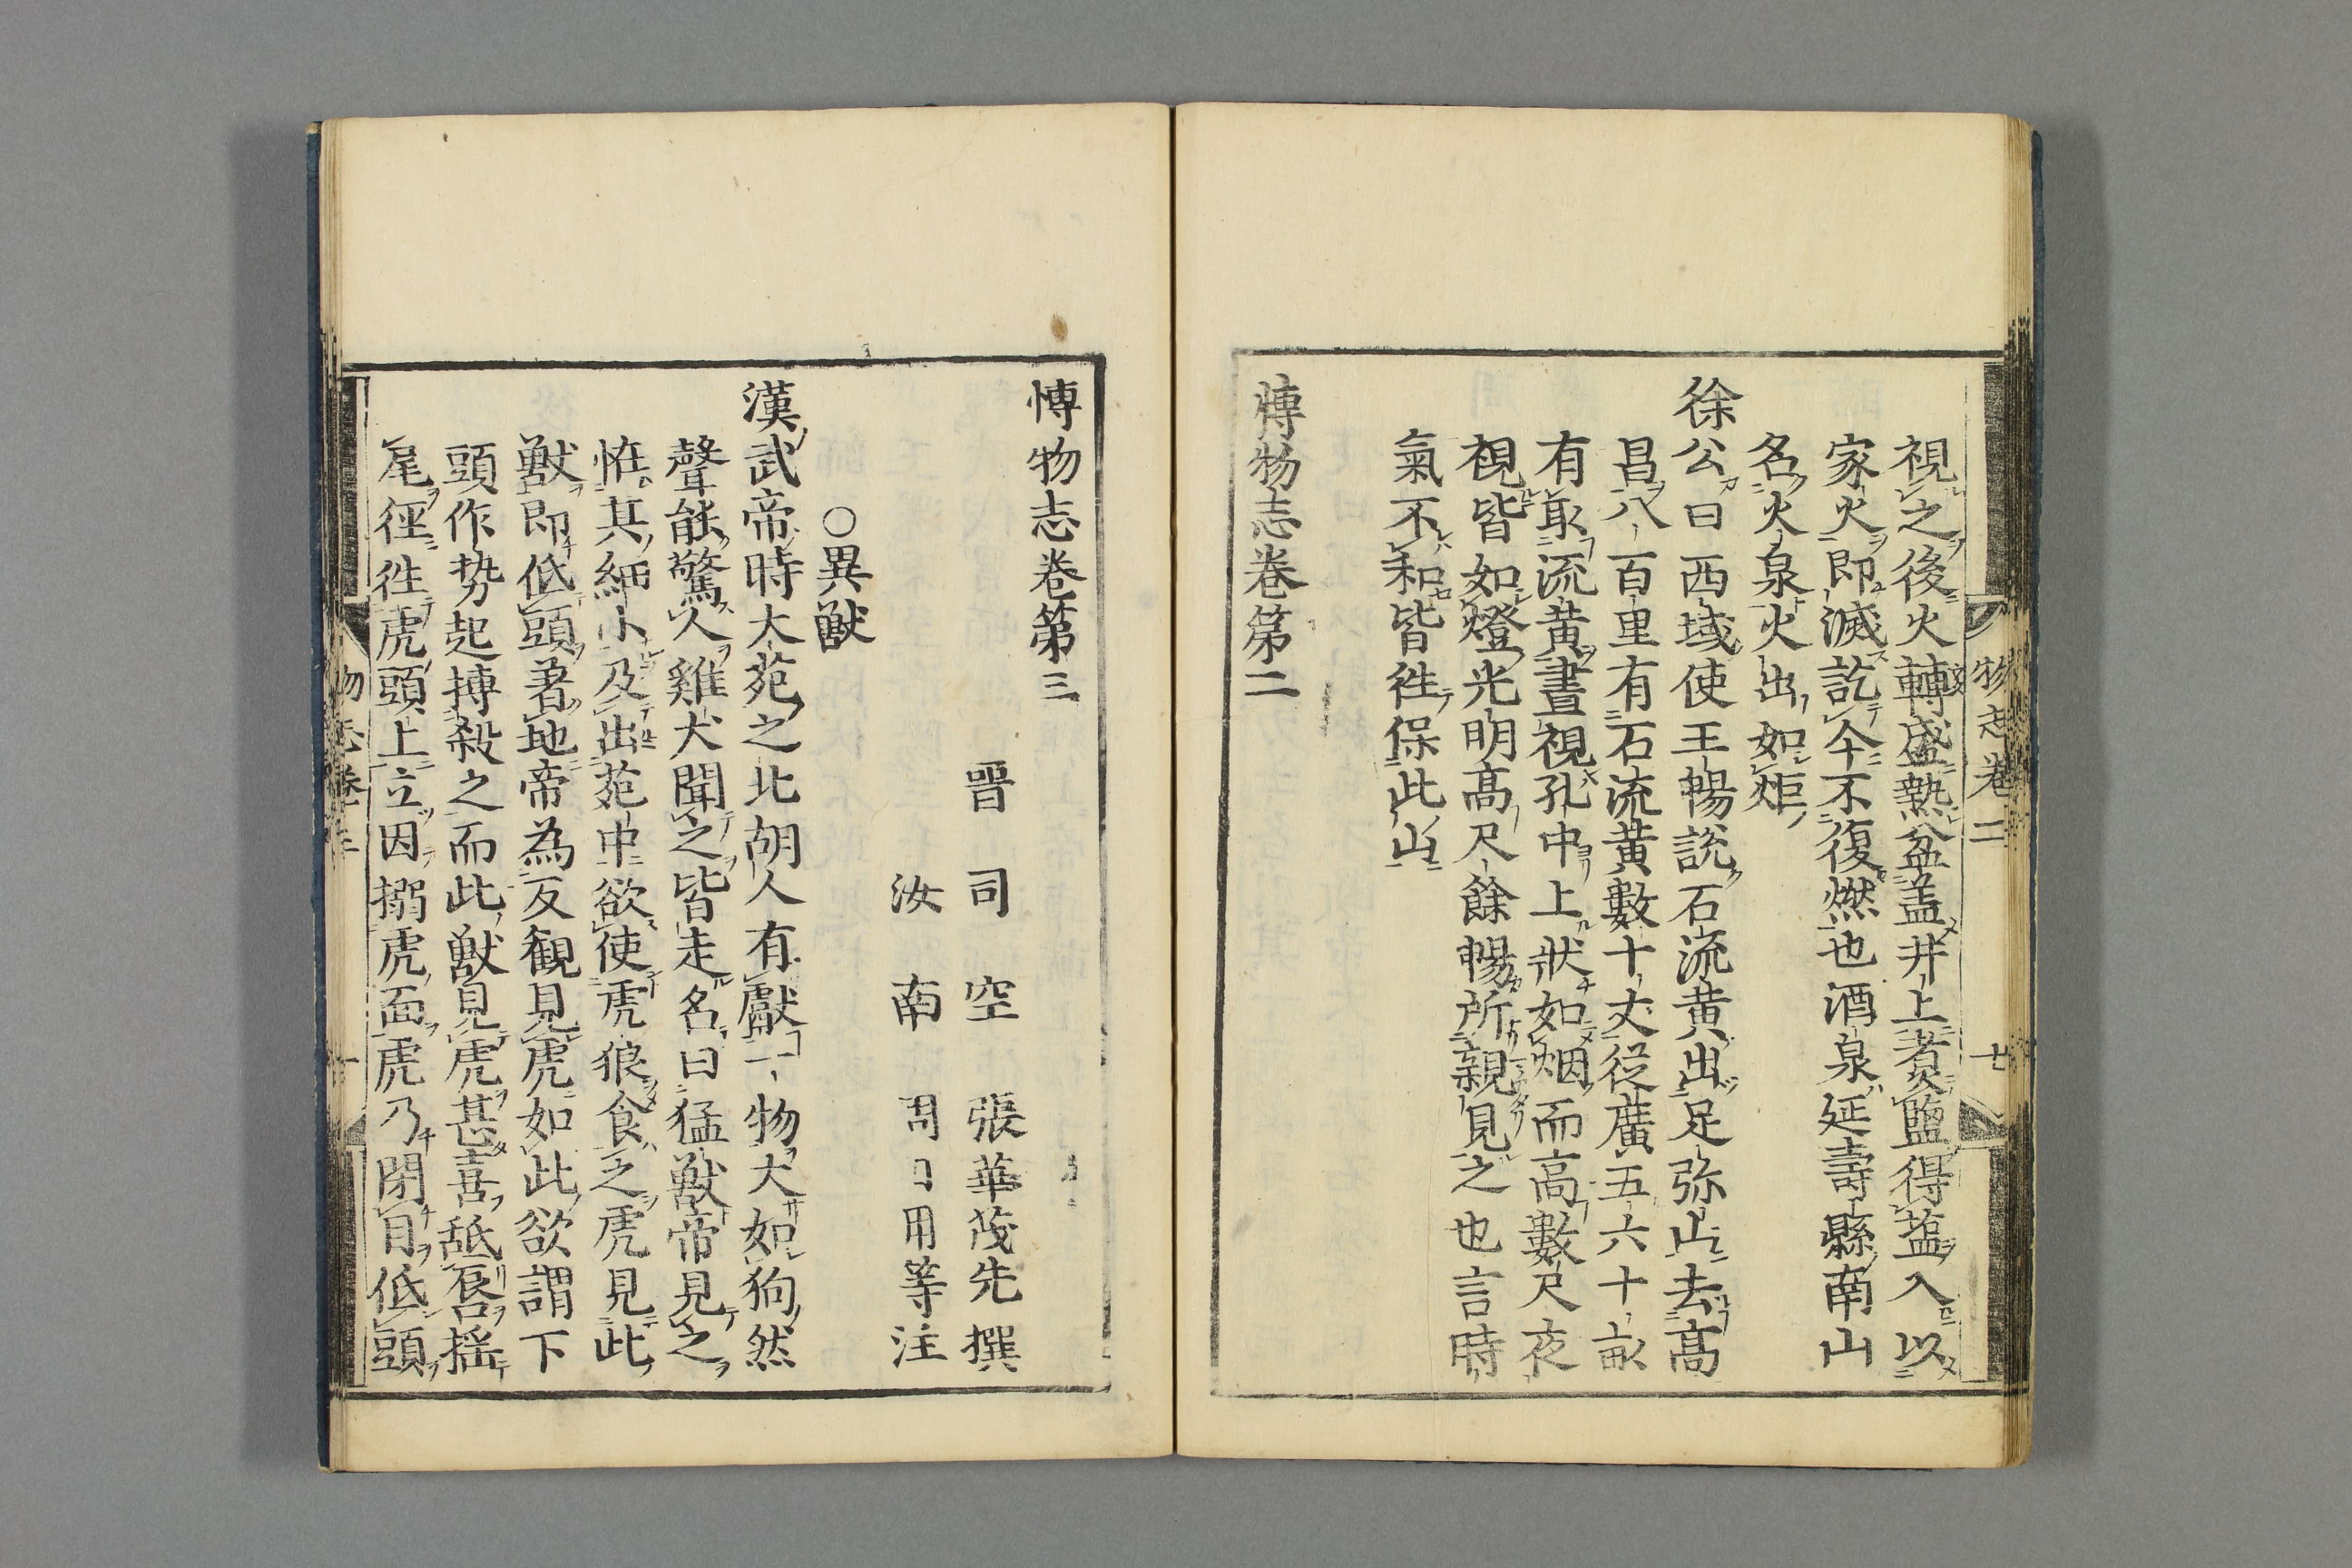 視之後火轉盛熱盆盖井上煑鹽得塩入以
家火即滅訖今不復燃也酒泉延壽縣南山
名火泉火出如炬
徐公曰西域使王暢説石流黄出足弥山去髙
昌八百里有石流黄數十丈從廣五六十畝
有取流黄晝視孔中上狀如烟而高數尺夜
視皆如燈光明髙尺餘暢所親見之也言時
氣不和皆徃保此山
博物志卷第二
物志卷二
七
博物志卷第三
晋司空張華茂先撰
汝南周日用等注
○異獣
漢武帝時大苑之北胡人有獻一物大如狗然
聲能驚人雞犬聞之皆走名曰猛獣帝見之
恠其細小及出苑中欲使虎狼食之虎見此
獣即低頭著地帝為反観見虎如此欲謂下
頭作势起搏殺之而此獣見虎甚喜舐唇揺
尾徑徃虎頭上立因搦虎面虎乃閉目低頭
物志卷三